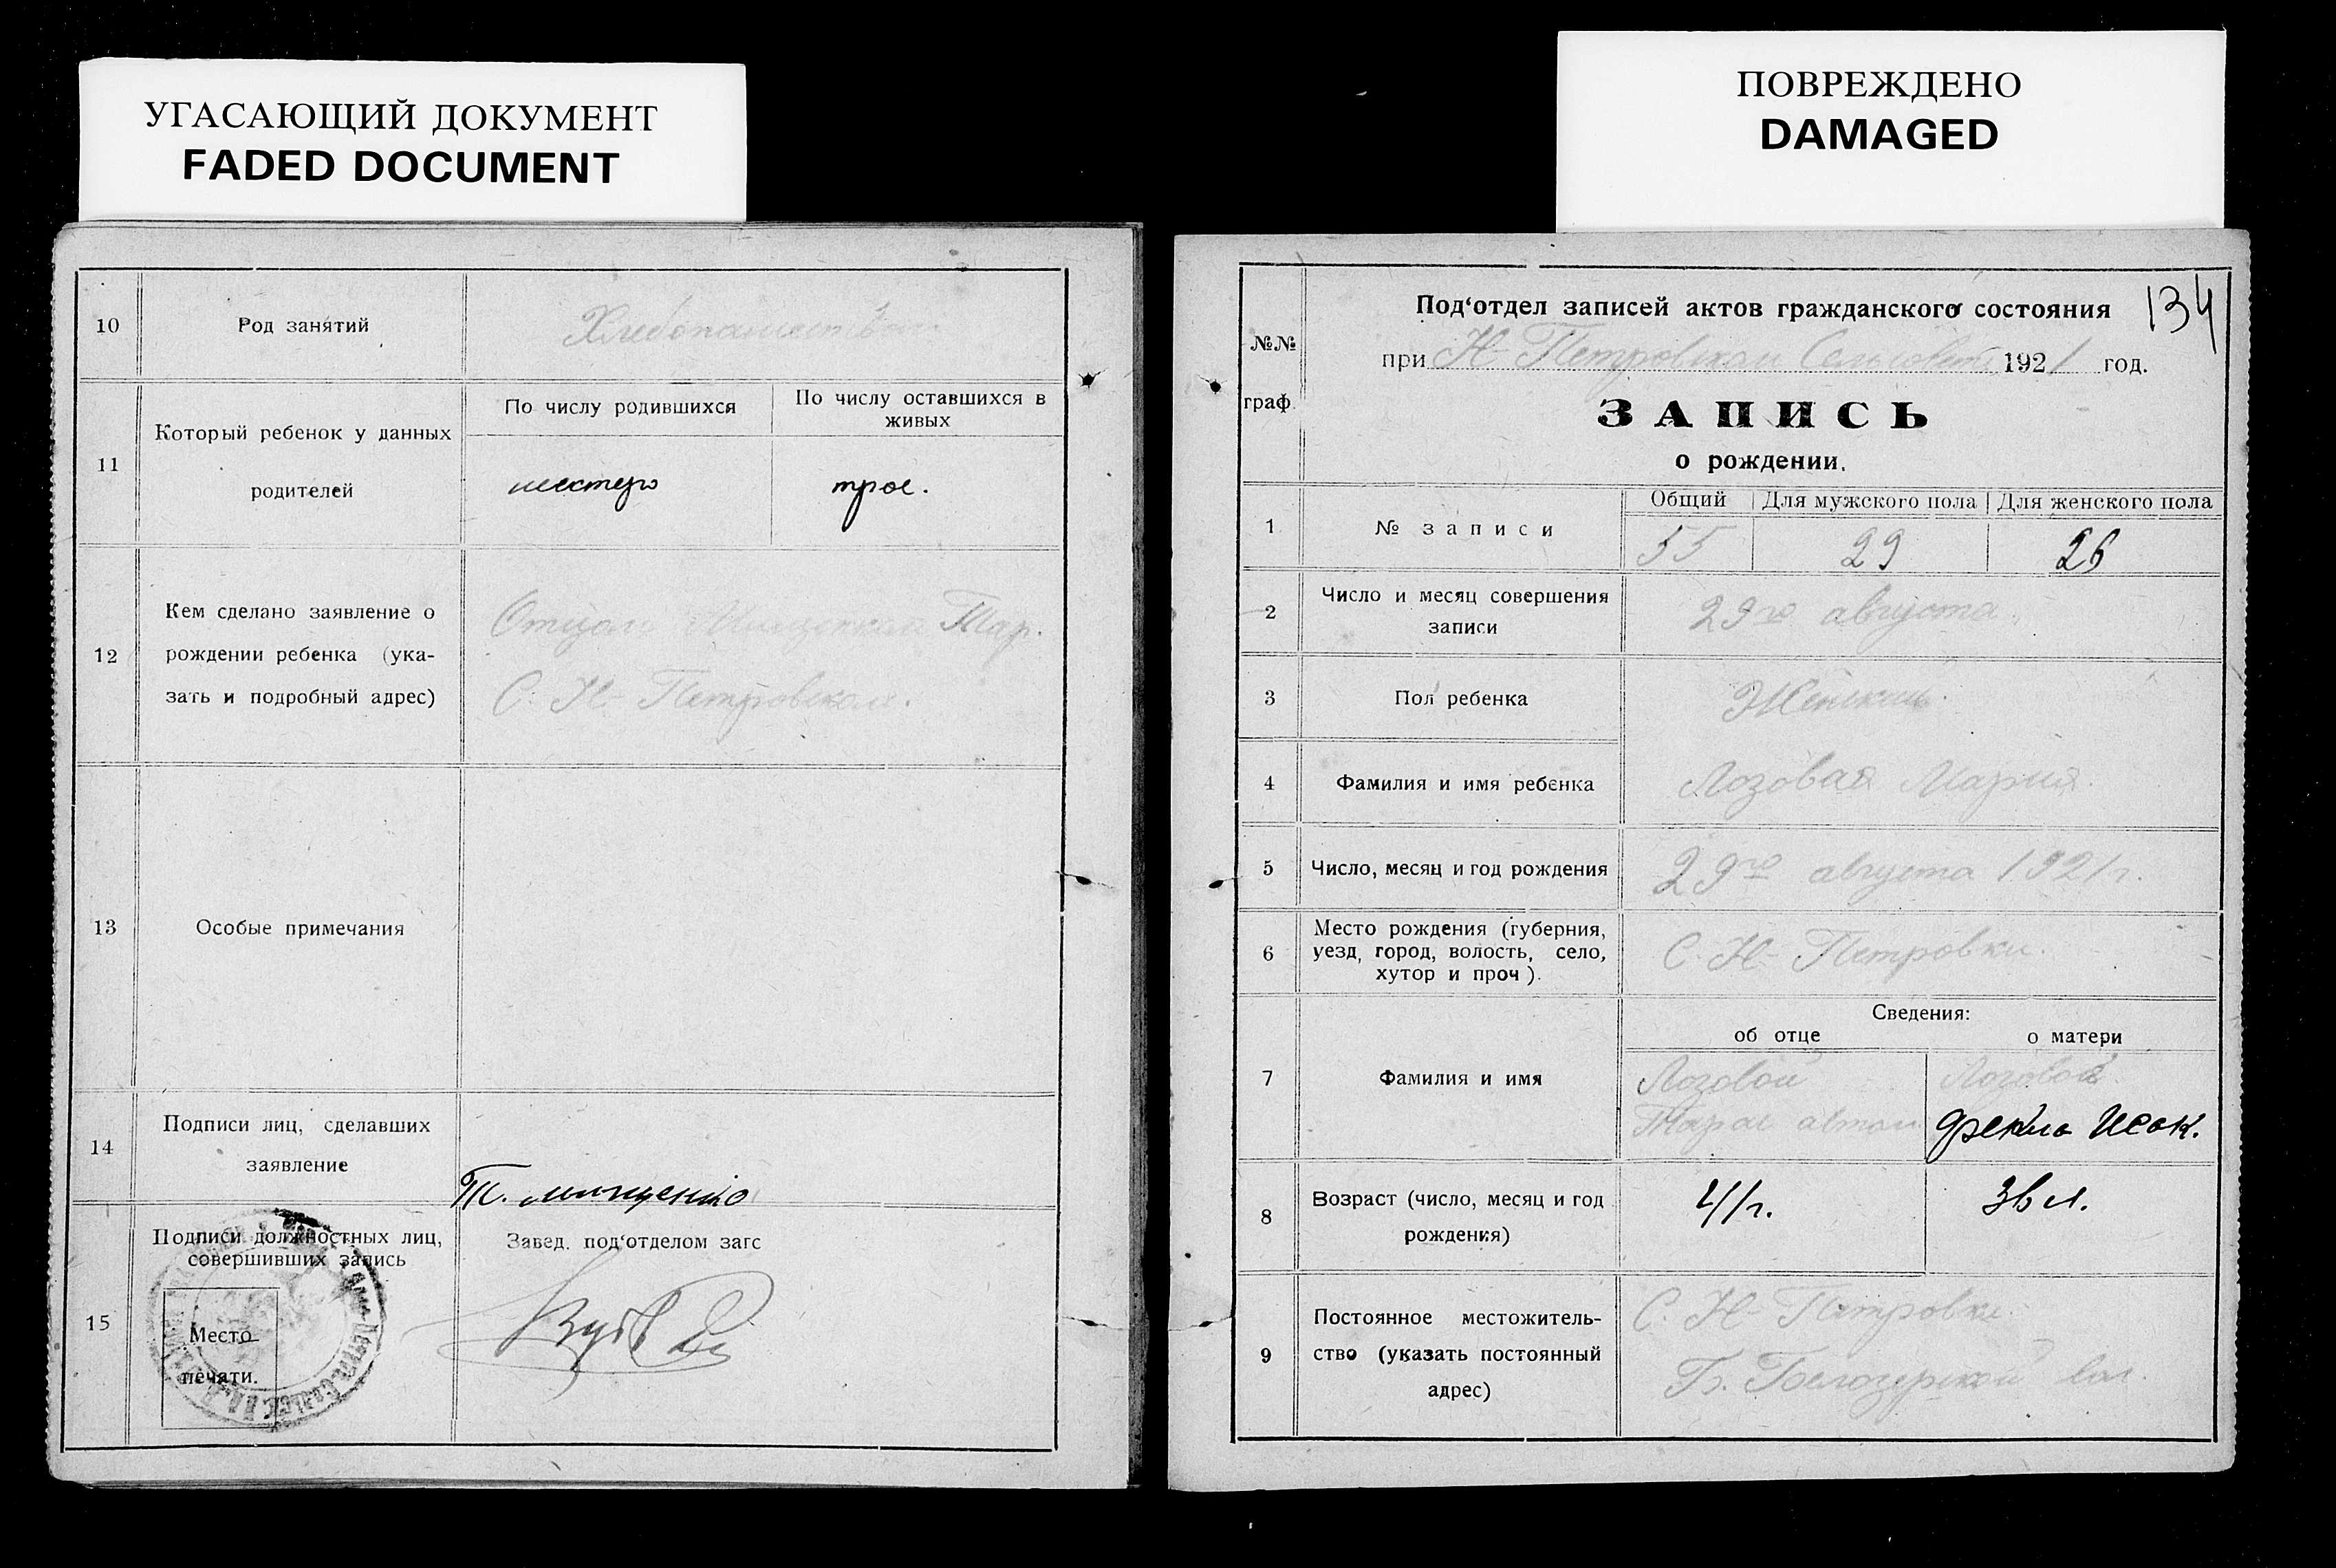 УГАСАЮЩИЙ ДОКУМЕНТ
FADED DOCUMENT
10
Род занятий
Хлебопашеством
11
Который ребенок у данных
родителей
По числу родившихся
По числу оставшихся в
живых
шестеро
трое.
12
Кем сделано заявление о
рождении ребенка (ука-
зать и подробный адрес)
Отцом Тар.
С. Н-Петровском.
13
Особые примечания
14
Подписи лиц, сделавших
заявление
Т.
15
Подписи должностных лиц,
совершивших запись
Место
печати.
Завед. под‘отделом загс
ПОВРЕЖДЕНО
DAMAGED
134
№№
граф.
Под‘отдел записей актов гражданского состояния
при Н-Петровском Сельсовете 1921 год.
ЗАПИСЬ
о рождении.
1
№ записи
Общий
Для мужского пола
Для женского пола
55
29
26
2
Число и месяц совершения
записи
29го августа
3
Пол ребенка
Женский.
4
Фамилия и имя ребенка
Лозовая Мария.
5
Число, месяц и год рождения
29го августа 1921 г.
6
Место рождения (губерния,
уезд, город, волость, село,
хутор и проч).
С. Н-Петровки.
Сведения:
об отце
о матери
7
Фамилия и имя
Лозовой
Тарас
Лозовая
Фекла Исак.
8
Возраст (число, месяц и год
рождения)
41 г.
36 л.
9
Постоянное местожитель-
ство (указать постоянный
адрес)
С. Н-Петровки
Б. Белозерской вол.